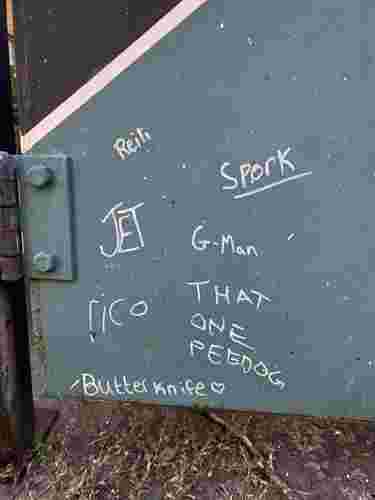 Reili
Spork
JET
G-Man
rico
THAT
ONE
PEEDOG
Butterknife♡